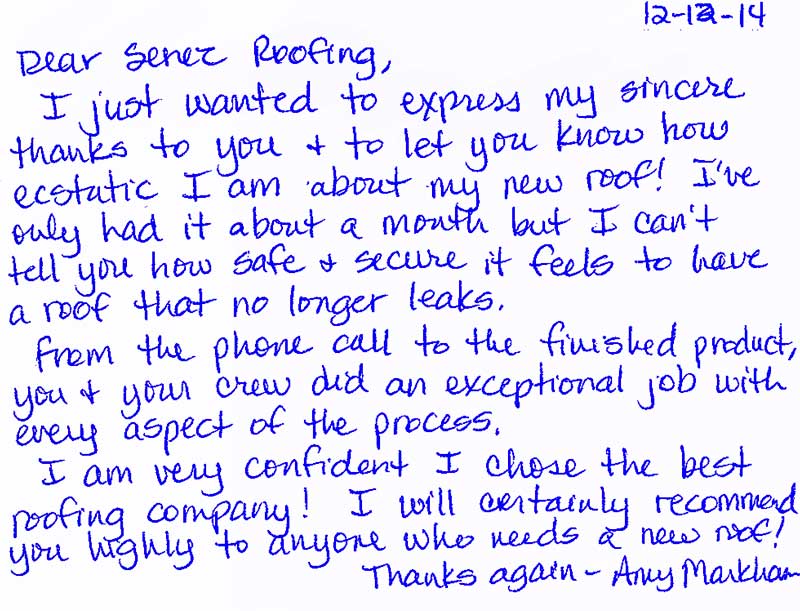 12-12-14
Dear Senez Roofing,
I just wanted to express my sincere
thanks to you + to let you know how
ecstatic I am about my new roof! I've
only had it about a month but I can't
tell you how safe + secure it feels to have
a roof that no longer leaks.
From the phone call to the finished product,
you + your crew did an exceptional job with
every aspect of the process.
I am very confident I chose the best
roofing company! I will certainly recommend
you highly to anyone who needs a new roof!
Thanks again - Amy Markham